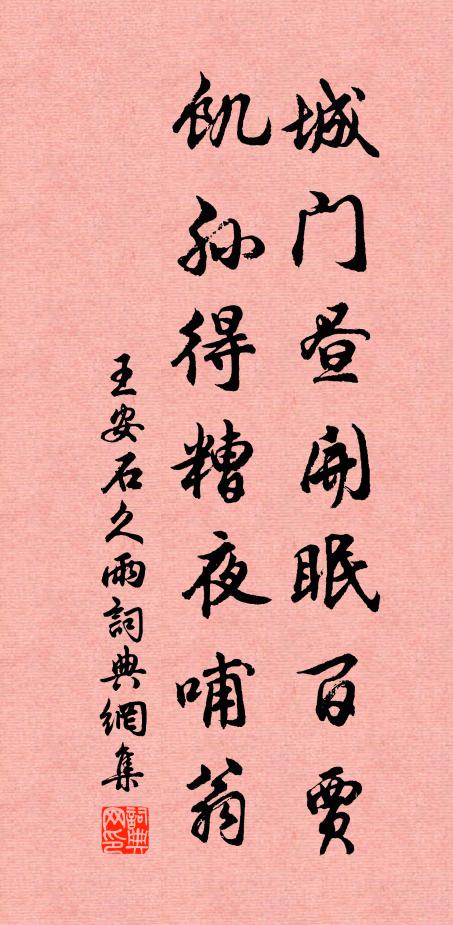 城门昼开眠百贾
飢孙得糟夜哺翁
王安石久雨詞典網集
詞典网印